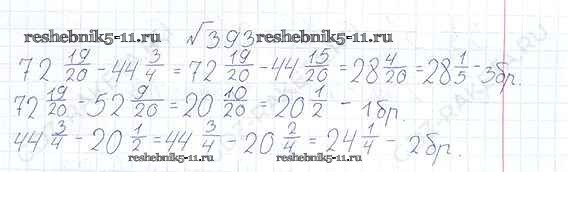 √393
reshebnik5-11.ru reshebnik5-11.ru
72 19/20 - 44 3/4 = 72 19/20 - 44 15/20 = 28 4/20 = 28 1/5 - 3бр.
72 19/20 - 52 9/20 = 20 10/20 = 20 1/2 - 1бр.
44 3/4 - 20 1/2 = 44 3/4 - 20 2/4 = 24 1/4 - 2бр.
reshebnik5-11.ru reshebnik5-11.ru